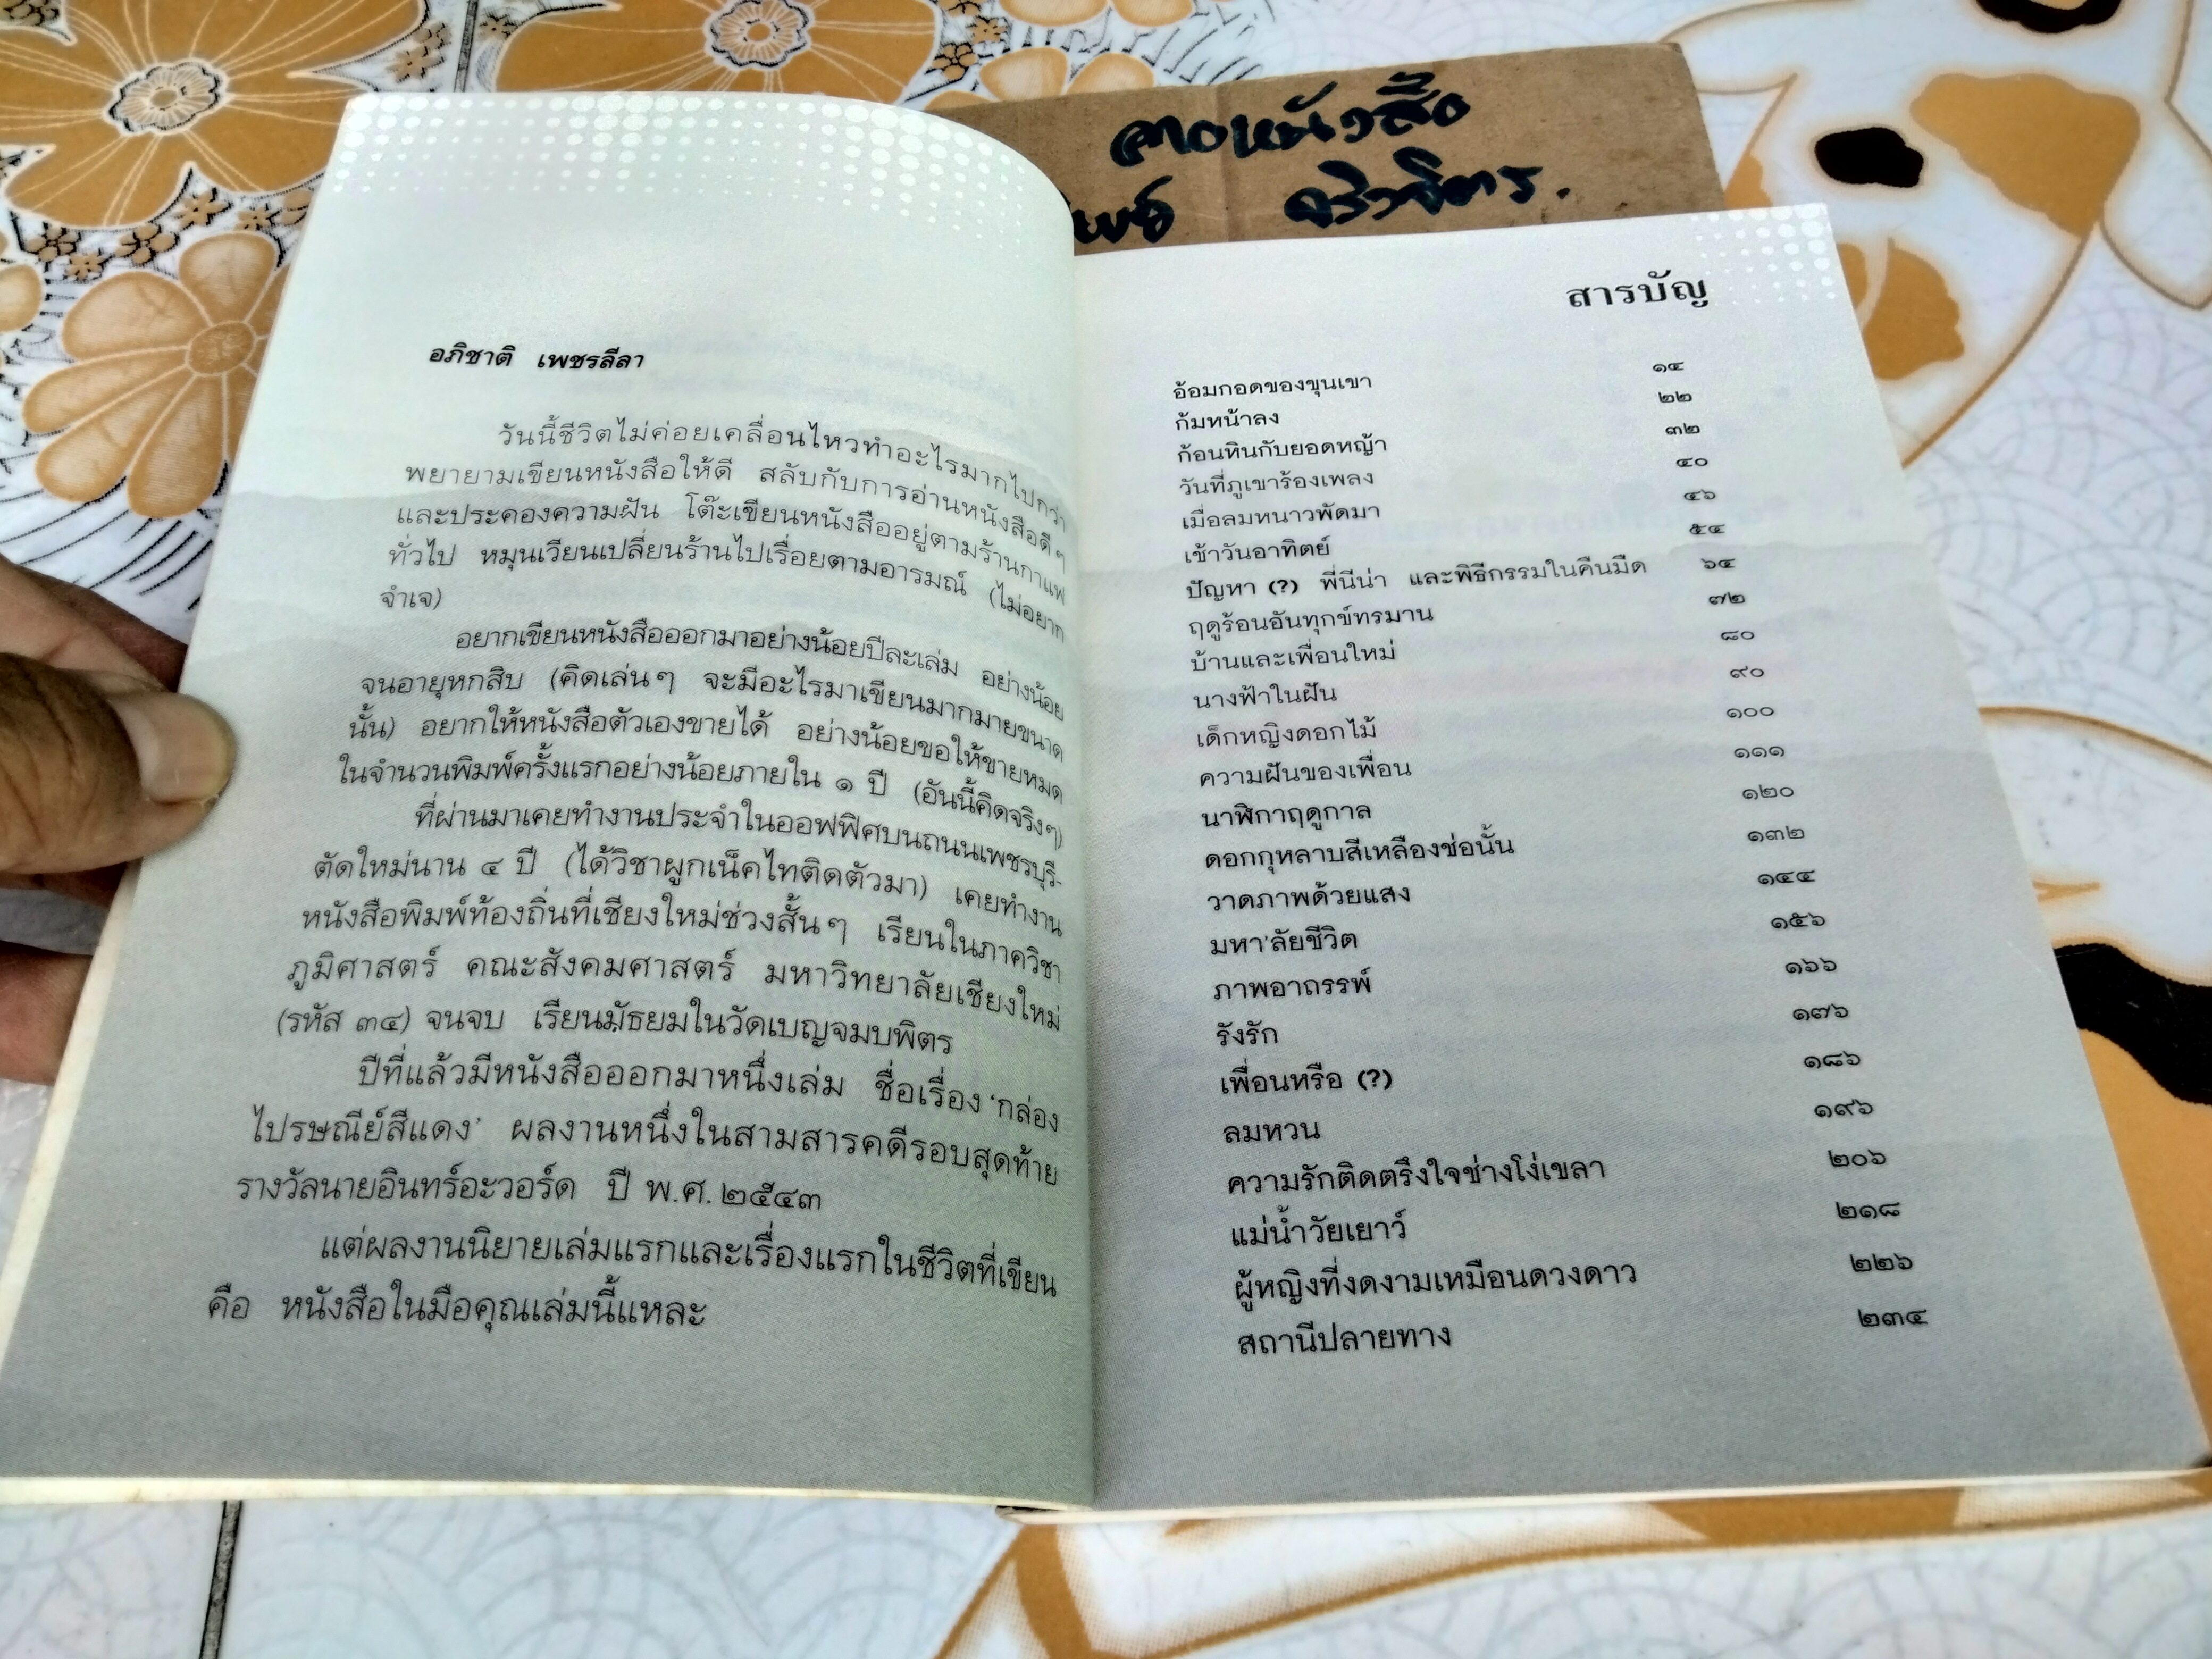 อภิชาติ เพชรลีลา
วันนี้ชีวิตไม่ค่อยเคลื่อนไหวทำอะไรมากไปกว่า
พยายามเขียนหนังสือให้ดี สลับกับการอ่านหนังสือดีๆ
และประคองความฝัน โต๊ะเขียนหนังสืออยู่ตามร้านกาแฟ
ทั่วไป หมุนเวียนเปลี่ยนร้านไปเรื่อยตามอารมณ์ (ไม่อยาก
จำเจ)
อยากเขียนหนังสือออกมาอย่างน้อยปีละเล่ม อย่างน้อย
จนอายุหกสิบ (คิดเล่นๆ จะมีอะไรมาเขียนมากมายขนาด
นั้น) อยากให้หนังสือตัวเองขายได้ อย่างน้อยขอให้ขายหมด
ในจำนวนพิมพ์ครั้งแรกอย่างน้อยภายใน ๑ ปี (อันนี้คิดจริงๆ)
ที่ผ่านมาเคยทำงานประจำในออฟฟิศบนถนนเพชรบุรี-
ตัดใหม่นาน ๔ ปี (ได้วิชาผูกเน็คไทติดตัวมา) เคยทำงาน
หนังสือพิมพ์ท้องถิ่นที่เชียงใหม่ช่วงสั้นๆ เรียนในภาควิชา
ภูมิศาสตร์ คณะสังคมศาสตร์ มหาวิทยาลัยเชียงใหม่
(รหัส ๓๔) จนจบ เรียนมัธยมในวัดเบญจมบพิตร
ปีที่แล้วมีหนังสือออกมาหนึ่งเล่ม ชื่อเรื่อง 'กล่อง
ไปรษณีย์สีแดง' ผลงานหนึ่งในสามสารคดีรอบสุดท้าย
รางวัลนายอินทร์อะวอร์ด ปี พ.ศ. ๒๕๔๓
แต่ผลงานนิยายเล่มแรกและเรื่องแรกในชีวิตที่เขียน
คือ หนังสือในมือคุณเล่มนี้แหละ
สารบัญ
อ้อมกอดของขุนเขา ๑๔
ก้มหน้าลง ๒๒
ก้อนหินกับยอดหญ้า ๓๒
วันที่ภูเขาร้องเพลง ๔๐
เมื่อลมหนาวพัดมา ๔๖
เช้าวันอาทิตย์ ๕๔
ปัญหา (?) พี่นีน่า และพิธีกรรมในคืนมืด ๖๔
ฤดูร้อนอันทุกข์ทรมาน ๗๒
บ้านและเพื่อนใหม่ ๘๐
นางฟ้าในฝัน ๙๐
เด็กหญิงดอกไม้ ๑๐๐
ความฝันของเพื่อน ๑๑๑
นาฬิกาฤดูกาล ๑๒๐
ดอกกุหลาบสีเหลืองช่อนั้น ๑๓๒
วาดภาพด้วยแสง ๑๔๔
มหา'ลัยชีวิต ๑๕๖
ภาพอาถรรพ์ ๑๖๖
รังรัก ๑๗๖
เพื่อนหรือ (?) ๑๘๖
ลมหวน ๑๙๖
ความรักติดตรึงใจช่างโง่เขลา ๒๐๖
แม่น้ำวัยเยาว์ ๒๑๘
ผู้หญิงที่งดงามเหมือนดวงดาว ๒๒๖
สถานีปลายทาง ๒๓๔